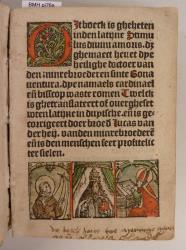 BMH pi76a
Dit boeck is gheheten
inden latijne Stimu
lus diuini amoris. dz
ghemaect heuet dye
heilighe doctoer van
den minrebroederen sinte Bona
uentura. dye namaels cardinael
eñ bisscop was te romen. Twelck
is ghetranslateert of ouergheset
wten latijne in duytsche. eñ is ge
corrigeert door broed̄ Lucas van
der heij. vanden minrebroederē
eñ is den menschen seer profitelic
ter sielen.
dit boeck